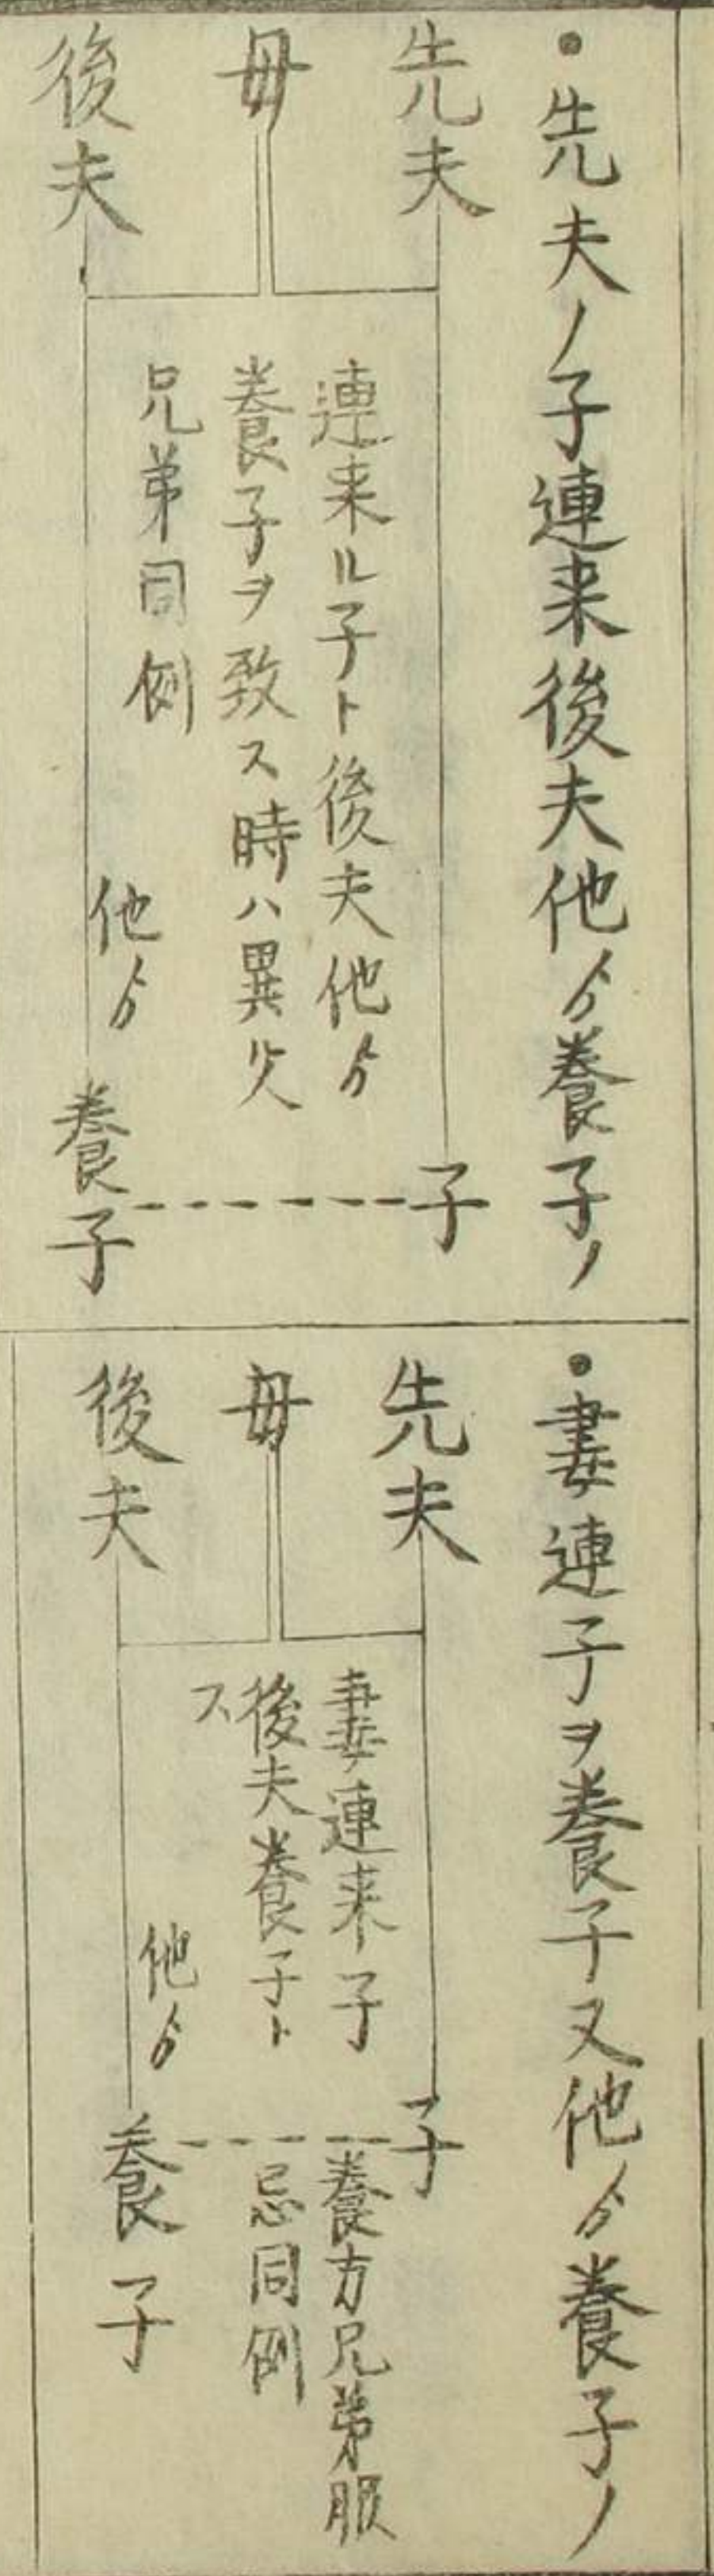 ・先夫ノ子連来後夫他ゟ養子ノ
先夫
母
後夫
連来ル子ト後夫他ゟ
養子ヲ致ス時ハ異父
兄弟同例
子
他ゟ
養子
・妻連子ヲ養子又他ゟ養子ノ
先夫
母
後夫
妻連来子
後夫養子ト
ス
子
他ゟ
養子
養方兄弟服
忌同例